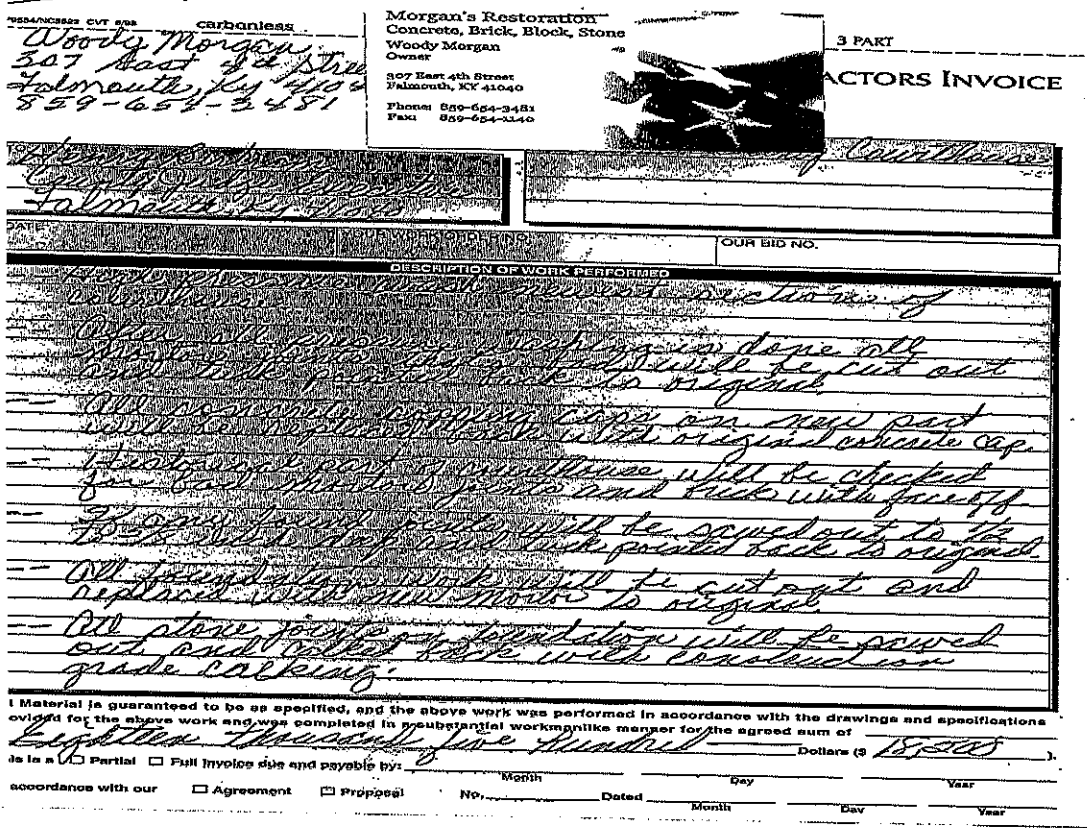 9554/NC3822 CVT 6/93 carbonless
Woody Morgan
307 East 4th Stree
Falmouth, Ky 4104
859-654-3481
Morgan's Restoration
Concrete, Brick, Block, Stone
Woody Morgan
Owner
307 East 4th Street
Falmouth, KY 41040
Phone: 859-654-3481
Fax: 859-654-1140
3 PART
ACTORS INVOICE
Henry
County Judge
Falmouth Ky
Courthouse
DATE
YOUR WORK ORDER NO.
OUR BID NO.
DESCRIPTION OF WORK PERFORMED
sections of
After all pressure washing is done all
mortar joints that are bad will be cut out
and tuck pointed back to original
-- All concrete copping caps on new part
will be replaced back with original concrete cap.
-- part of courthouse will be checked
for bad mortar joints and brick with face off.
-- If any found joints will be sawed out to 1/2
and tuck pointed back to original
-- All foundation work will be cut out and
replaced with new mortor to original
-- All stone joints on foundation will be sawed
out and calked back with construction
grade calking.
l Material is guaranteed to be as specified, and the above work was performed in accordance with the drawings and specifications
ovided for the above work and was completed in a substantial workmanlike manner for the agreed sum of
Eighteen thousand five hundred Dollars ($ 18,500 ).
is is a Partial Full Invoice due and payable by: Month Day Year
accordance with our Agreement Proposal No. Dated Month Day Year